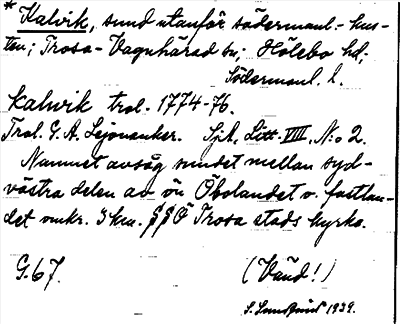 * Kalvik, sund utanför södermanl.- kus-
ten; Trosa-Vagnhärad sn; Hölebo hd;
Södermanl. l.
Kalwik trol. 1774-76.
Trol. G. A. Lejonanker. Sjk. Litt. VIII, N:o 2.
Namnet avsåg sundet mellan syd-
västra delen av ön Öbolandet o. fastlan-
det omkr. 3 km. SSO Trosa stads kyrka.
G. 67. (Vänd!)
S. 1939.